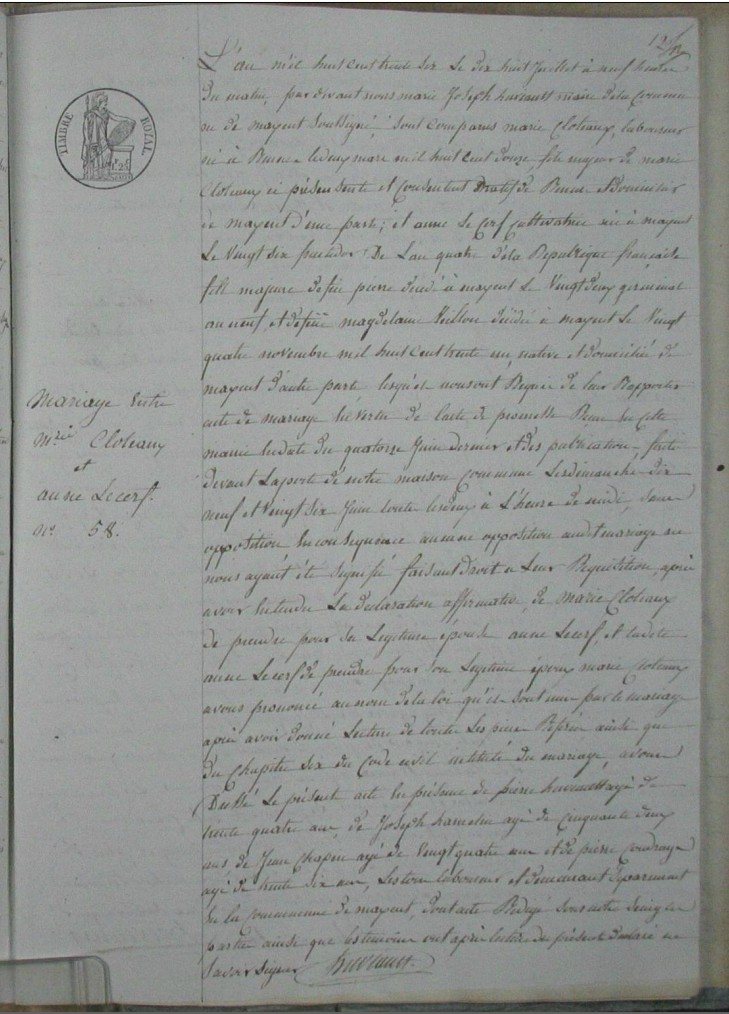 L'an mil huit cent trente six Le dix huit Juillet à neuf heures
Du matin, par devant nous marie Joseph maire Dela Commu
ne de mayent Soussigné, Sont comparus marie Cloteaux, laboureur
né à mars mil huit Cent Douze, fils majeur de marie
Cloteaux ci présent et Consentant natif de et Domicilié
de mayent d'une part; et anne Le Cerf Cultivatrice née à mayent
Le Vingt six De L'an quatre Dela République française
fille majeure defeu pierre décédé à mayent Le Vingt deux germinal
an neuf, et defeue magdelaine décédée à mayent Le Vingt
quatre novembre mil huit Cent trente un, native et domiciliée de
mayent d'autre part lesquels nous ont Requis de leur Rapporter
acte de mariage En Vertu de l'acte de promesse Reçu En Cette
mairie En date du quatorze Juin dernier et des publications faites
devant La porte de notre maison Commune Les dimanches dix
neuf et Vingt six Juin toutes les deux à L'heure de midi, sans
opposition, En Consequence aucune opposition audit mariage ne
nous ayant été signifié faisant droit à Leur Réquisition, après
avoir Entendu La Declaration affirmative, de marie Cloteaux
de prendre pour sa Legitime épouse anne Lecerf, et ladite
anne Lecerf de prendre pour son Legitime époux marie Cloteaux
avons prononcé au nom de la loi qu'ils sont unis par le mariage
après avoir donné Lecture de toutes Les pieces ainsi que
du Chapitre six du Code civil intitulé du mariage, avons
Dressé Le présent acte En présence de pierre agé de
trente quatre ans, de Joseph hamelin agé de Cinquante deux
ans de Jean Chapin agé de Vingt quatre ans et de pierre Coudray
agé de trente six ans, Les tous laboureurs et demeurant séparément
En la Commune de mayent, Dont acte Rédigé sous notre seing les
parties ainsi que les temoins ont après lecture du présent déclaré ne
Savoir signer
Mariage Entre
Mrie Cloteaux
et
anne Lecerf.
No. 58.
TIMBRE ROYAL